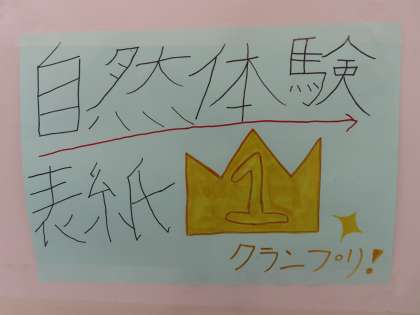 自然体験
表紙
1
クランプリ!